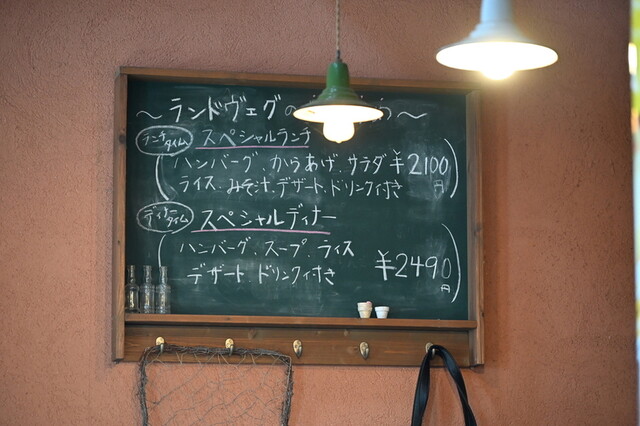 〜ランドヴェグの う〜
ランチタイム スペシャルランチ
ハンバーグ、からあげ、サラダ ¥2100円
ライス、みそ汁、デザート、ドリンク付き
ディナータイム スペシャルディナー
ハンバーグ、スープ、ライス
デザート、ドリンク付き ¥2490円